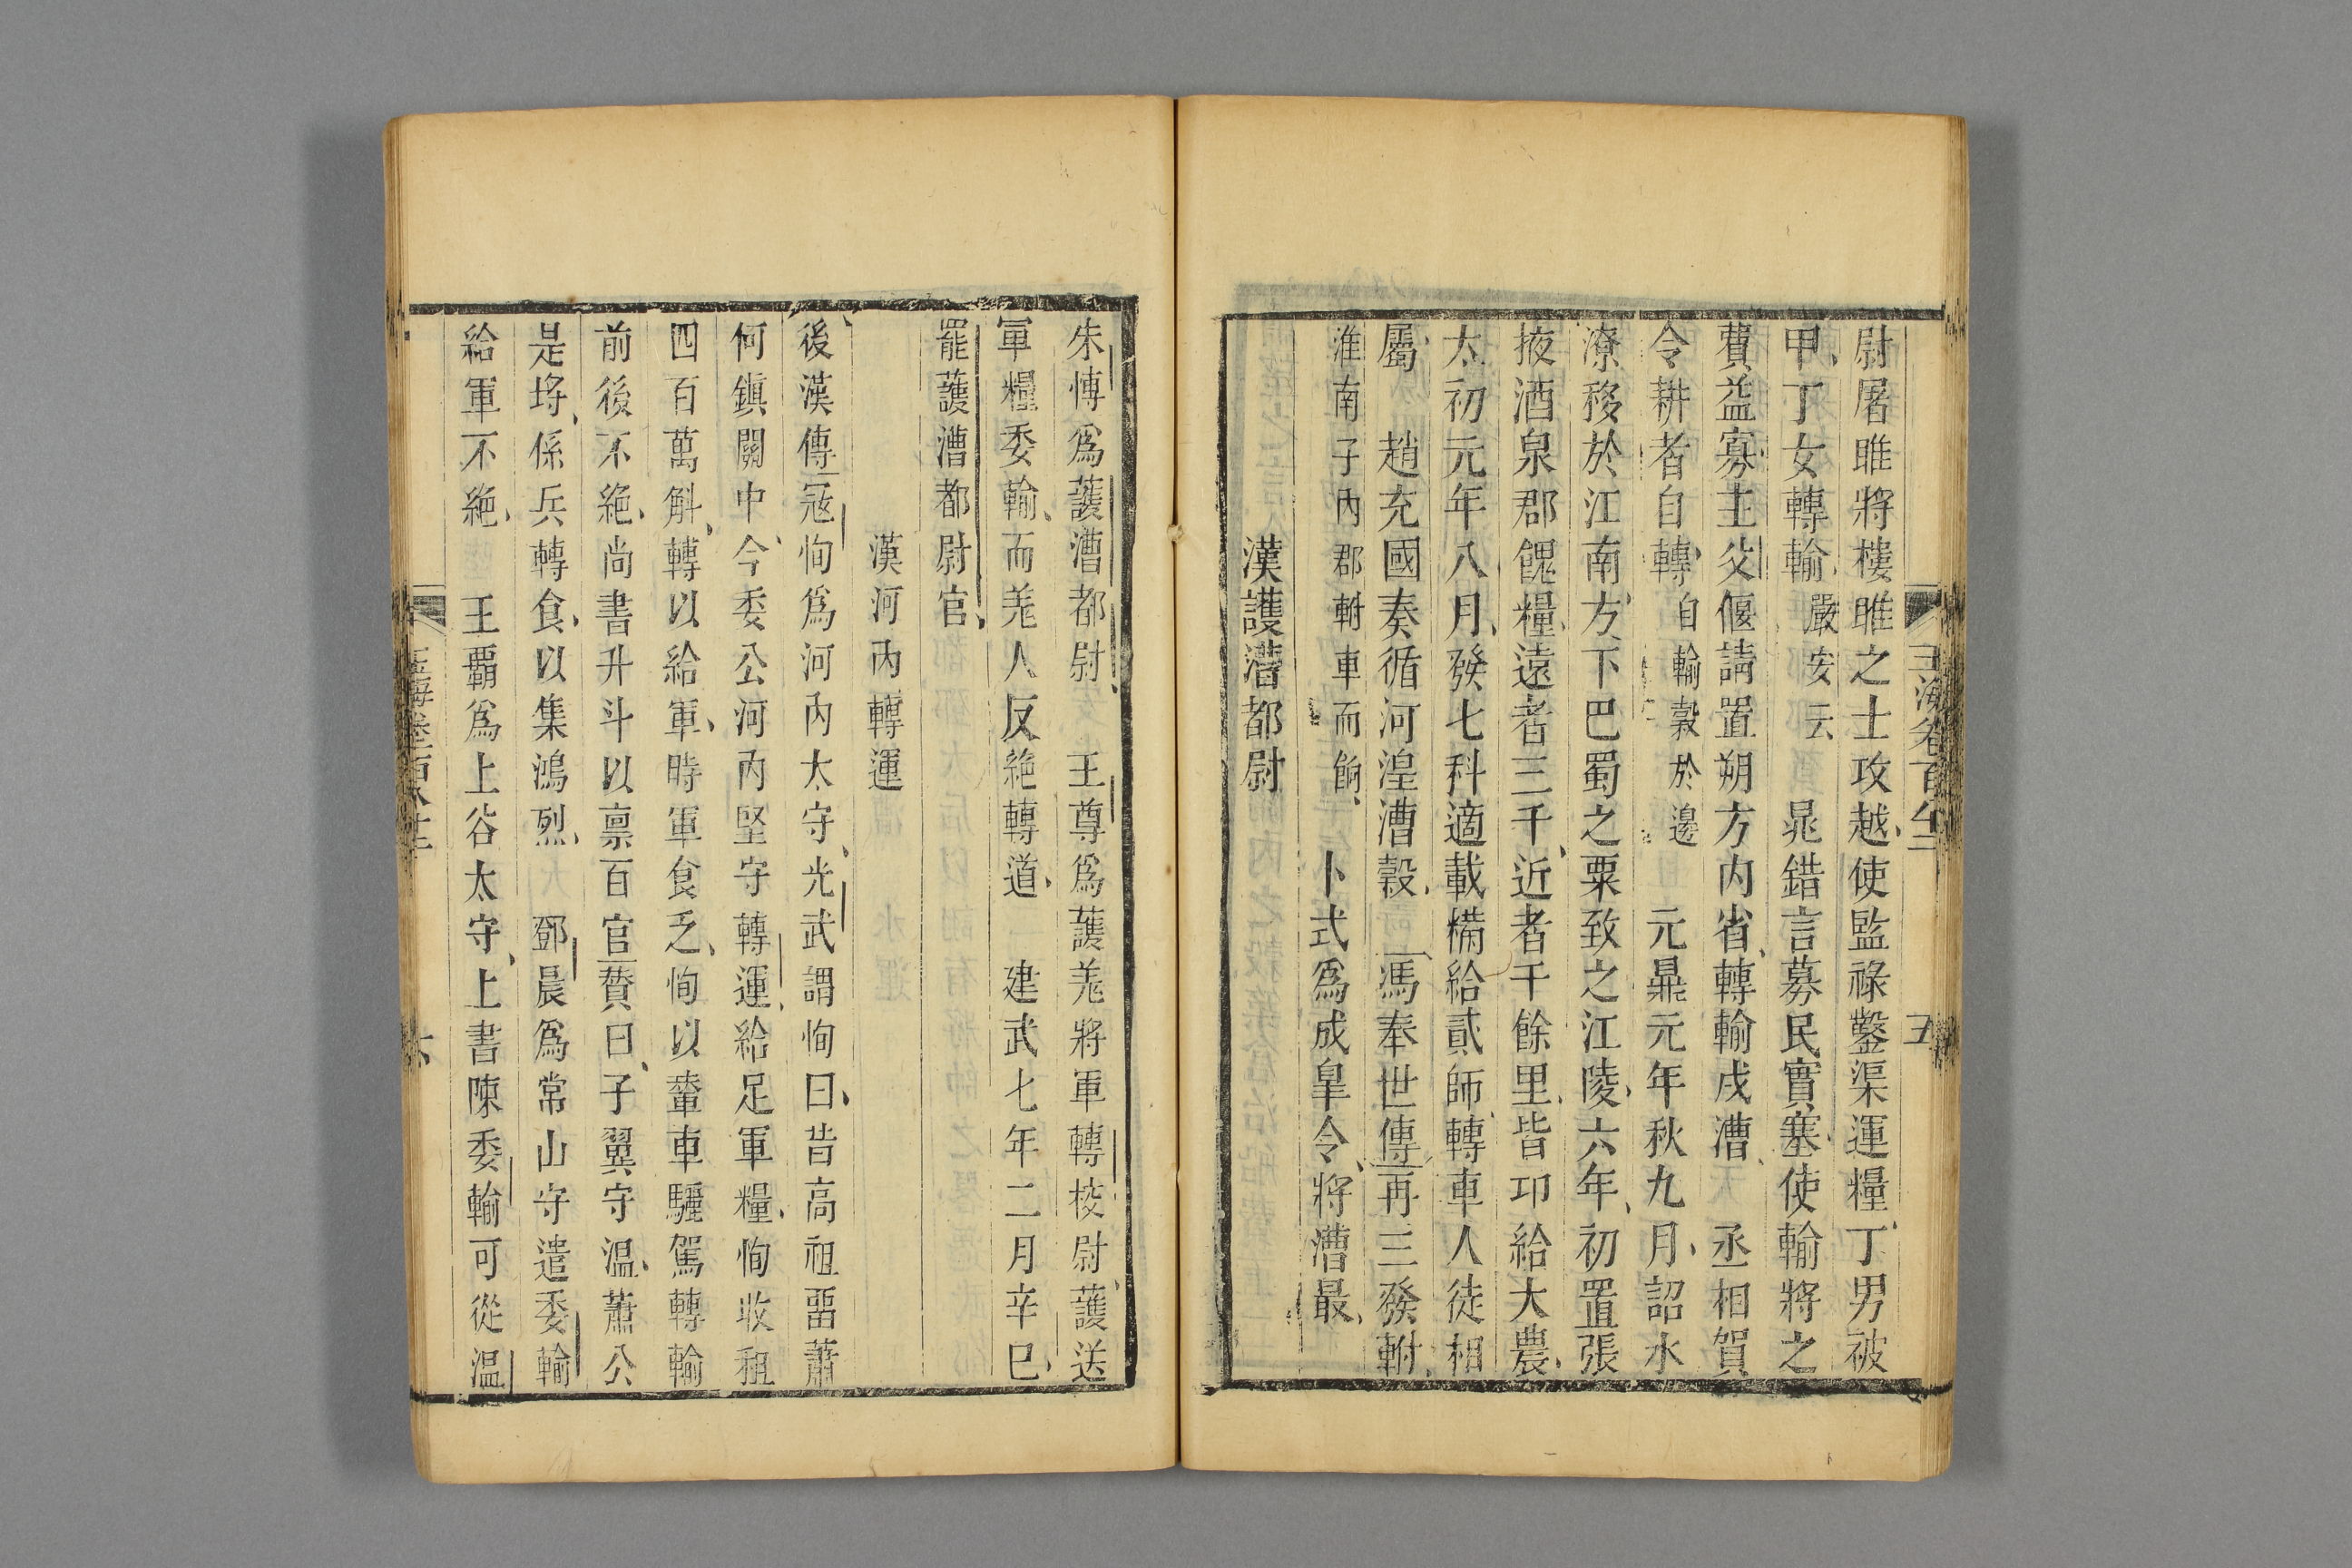 尉屠睢將樓睢之士攻越使監祿鑿渠運糧丁男被
甲丁女轉輸嚴安云　晁錯言募民實塞使輸將之
費益寡主父偃請置朔方內省轉輸戍漕　丞相賀
令耕者自轉自輸穀於邊　元鼎元年秋九月詔水
潦移於江南方下巴蜀之粟致之江陵六年初置張
掖酒泉郡餽糧遠者三千近者千餘里皆卬給大農
太初元年八月發七科適載糒給貳師轉車人徒相
屬　趙充國奏循河湟漕穀　馮奉世傳再三發軵
淮南子內郡軵車而餉　卜式爲成臯令將漕最
漢護漕都尉
玉海卷百八十二
五
朱博爲護漕都尉　王尊爲護羌將軍轉校尉護送
軍糧委輸而羌人反絶轉道　建武七年二月辛巳
罷護漕都尉官
漢河內轉運
後漢傳寇恂爲河內太守光武謂恂曰昔高祖畱蕭
何鎭關中今委公河內堅守轉運給足軍糧恂收租
四百萬斛轉以給軍時軍食乏恂以輦車驪駕轉輸
前後不絶尚書升斗以禀百官贊曰子翼守溫蕭公
是埒係兵轉食以集鴻烈　鄧晨爲常山守遣委輸
給軍不絶　王霸爲上谷太守上書陳委輸可從溫
玉海卷一百八十二
六